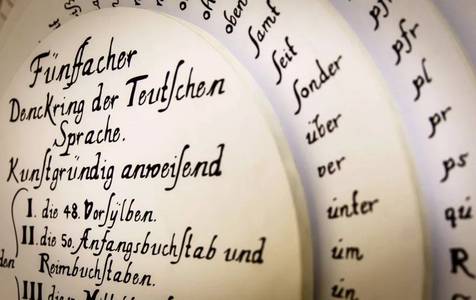 Fünffacher
Denckring der Teutschen
Sprache.
Kunstgründig anweisend
I. die 48. Vorsylben.
II. die 50. Anfangsbuchstab und
den Reimbuchstaben.
III die
oben
samt
seit
sonder
über
ver
unter
um
un
pf
pfr
pl
pr
ps
qu
R